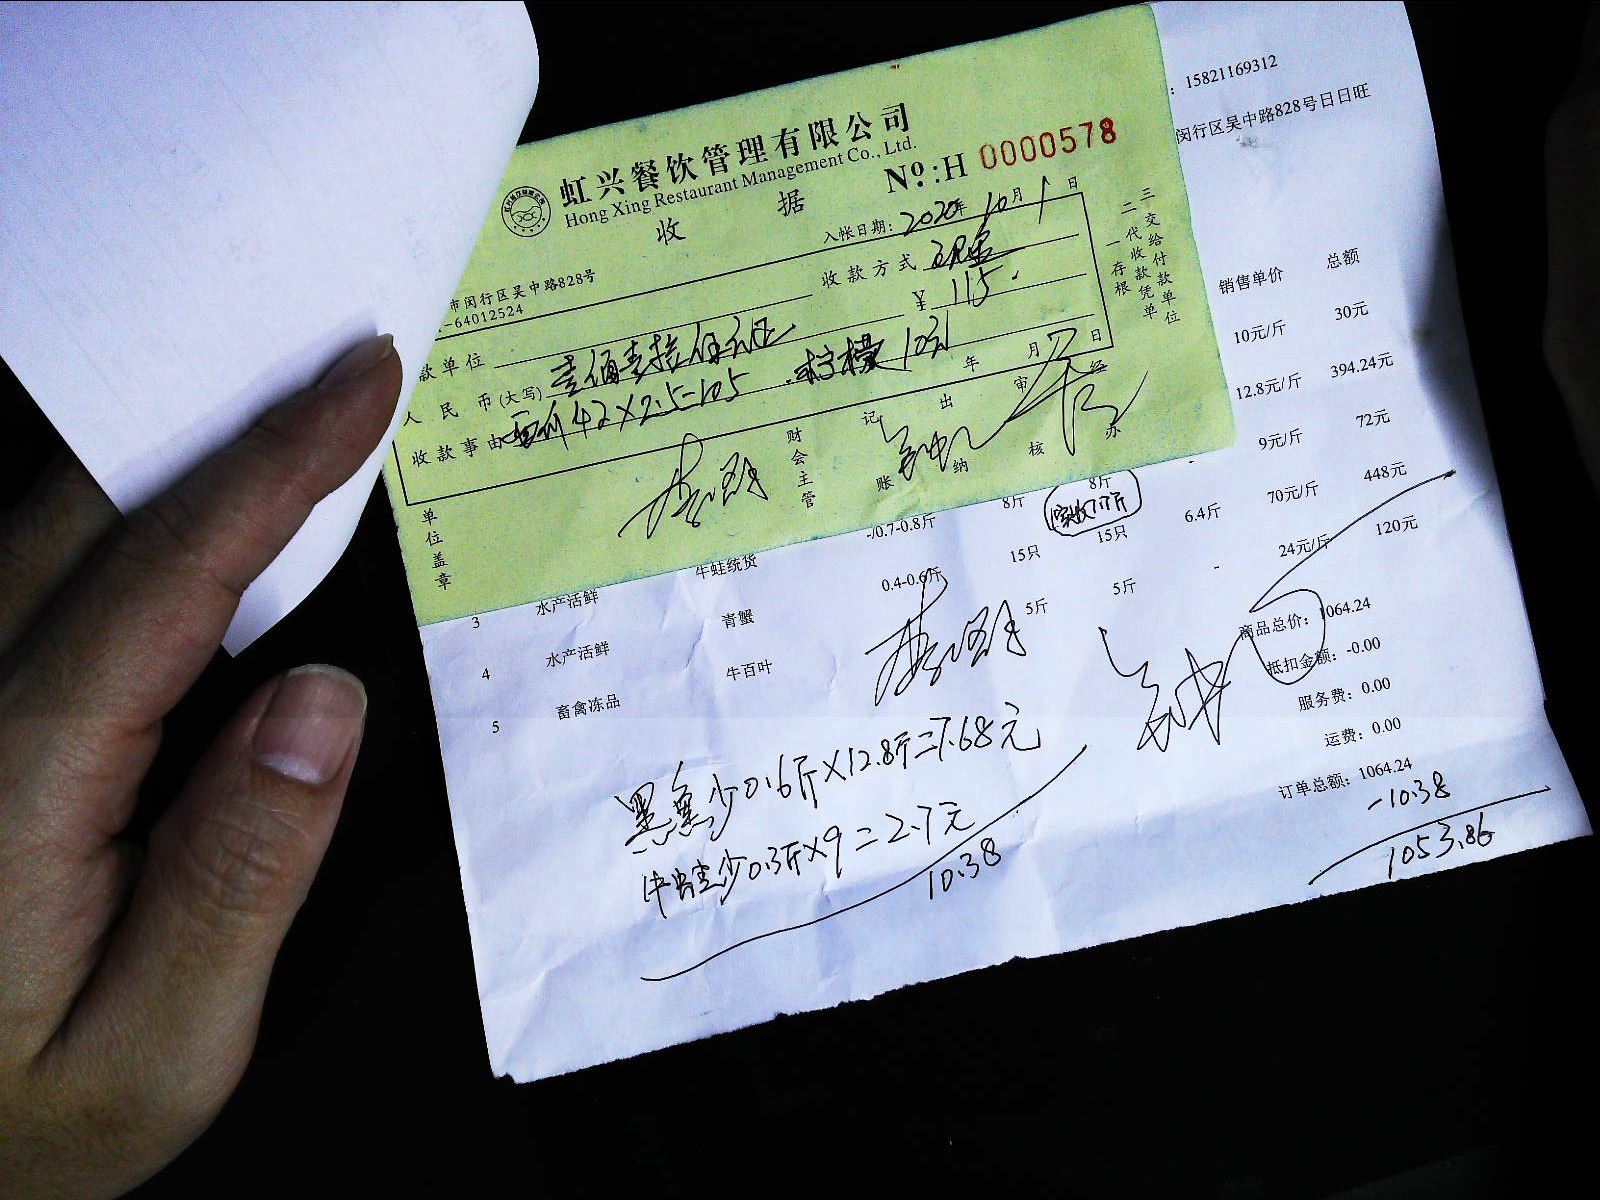 虹兴餐饮管理有限公司
Hong Xing Restaurant Management Co., Ltd.
No:H 0000578
收 据
入帐日期: 2020年 10月 1日
市闵行区吴中路828号
-64012524
收款方式 现金
款单位
¥ 115.
人民币(大写) 壹佰壹拾伍元正
收款事由 42×2.5=105 柠檬10元
年 月 日
单位盖章
财会主管
记账
出纳
审核
经办
一存根
二代收款凭单
三交给付款单位
: 15821169312
闵行区吴中路828号日日旺
销售单价 总额
10元/斤 30元
12.8元/斤 394.24元
9元/斤 72元
3 水产活鲜 牛蛙统货 -/0.7-0.8斤 8斤 8斤 - 9元/斤 72元
实收7.7斤
4 水产活鲜 青蟹 0.4-0.6斤 15只 15只 6.4斤 70元/斤 448元
5 畜禽冻品 牛百叶 5斤 5斤 - 24元/斤 120元
商品总价: 1064.24
抵扣金额: -0.00
服务费: 0.00
运费: 0.00
订单总额: 1064.24
-10.38
1053.86
黑鱼少0.6斤×12.8斤=7.68元
牛蛙少0.3斤×9=2.7元
10.38